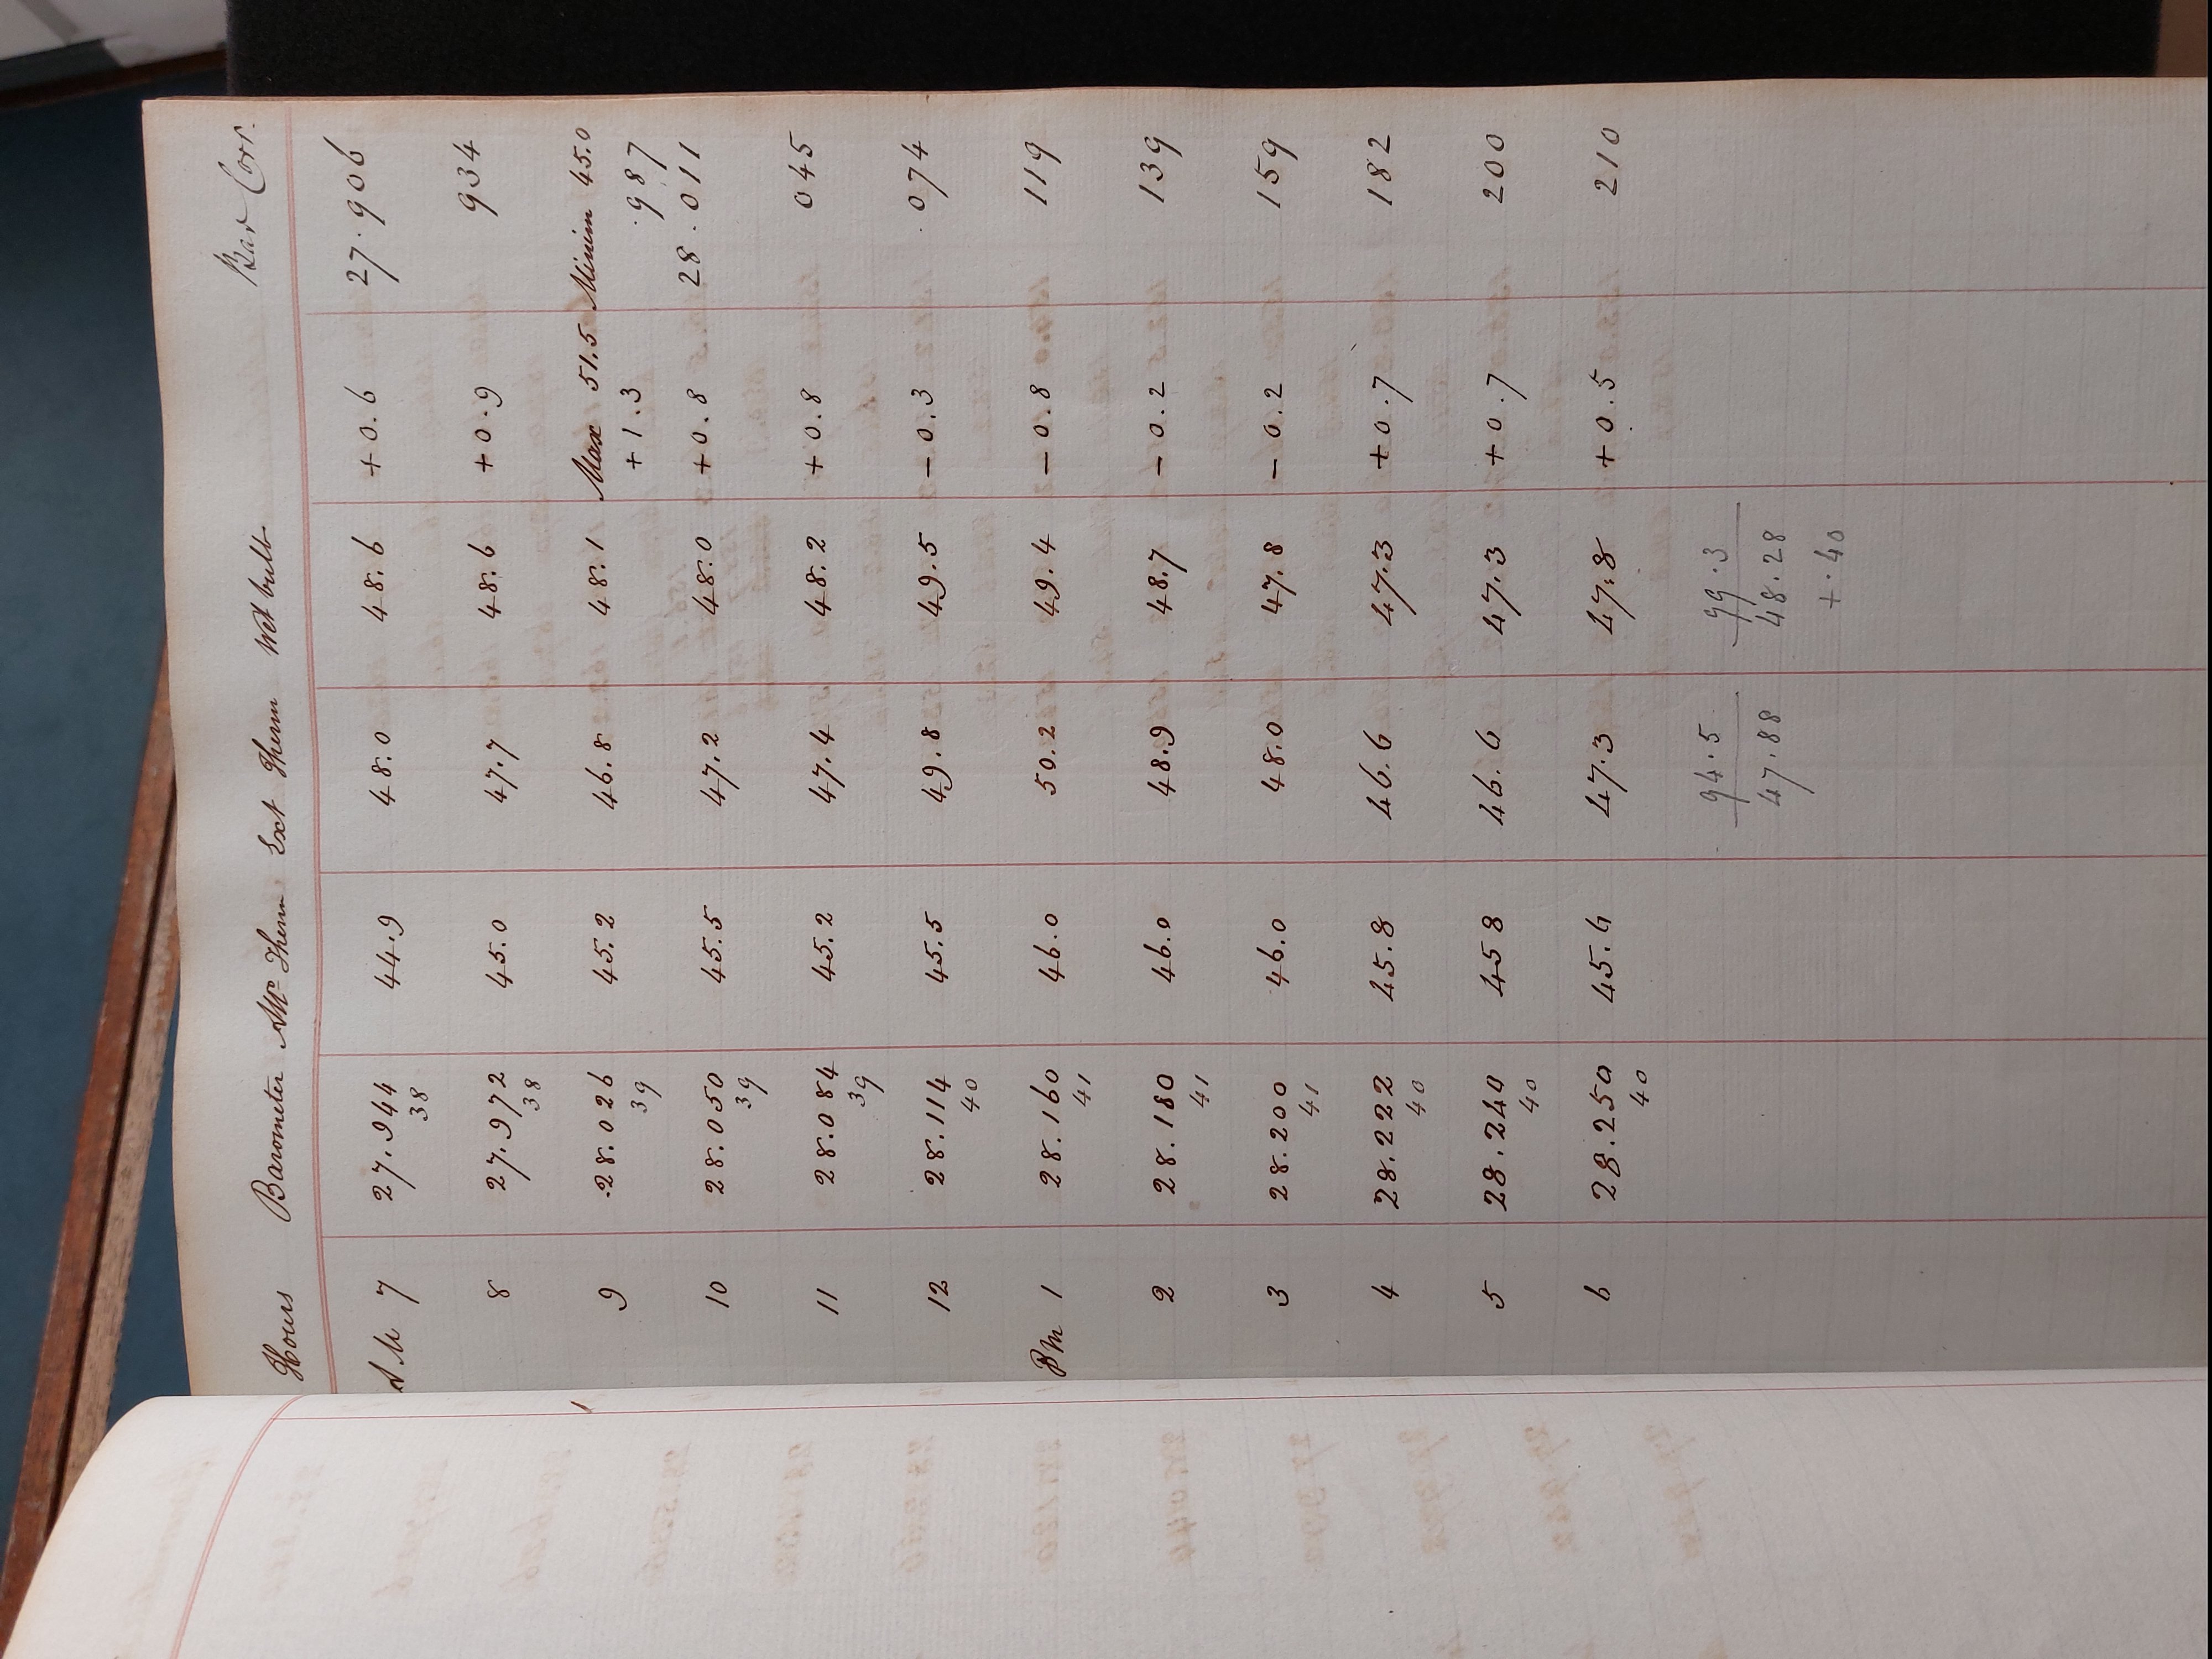 Hours Barometer Attd Therm Ext Therm Wet bulb Bar Corr.
AM 7 27.944 44.9 48.0 48.6 +0.6 27.906
38
8 27.972 45.0 47.7 48.6 +0.9 934
38
9 28.026 45.2 46.8 48.1 Max 51.5 Minim 45.0
39 +1.3 .987
10 28.050 45.5 47.2 48.0 +0.8 28.011
39
11 28.084 45.2 47.4 48.2 +0.8 045
39
12 28.114 45.5 49.8 49.5 -0.3 074
40
PM 1 28.160 46.0 50.2 49.4 -0.8 119
41
2 28.180 46.0 48.9 48.7 -0.2 139
41
3 28.200 46.0 48.0 47.8 -0.2 159
41
4 28.222 45.8 46.6 47.3 +0.7 182
40
5 28.240 45 8 46.6 47.3 +0.7 200
40
6 28.250 45.6 47.3 47.8 +0.5 210
40
94.5 99.3
47.88 48.28
+.40